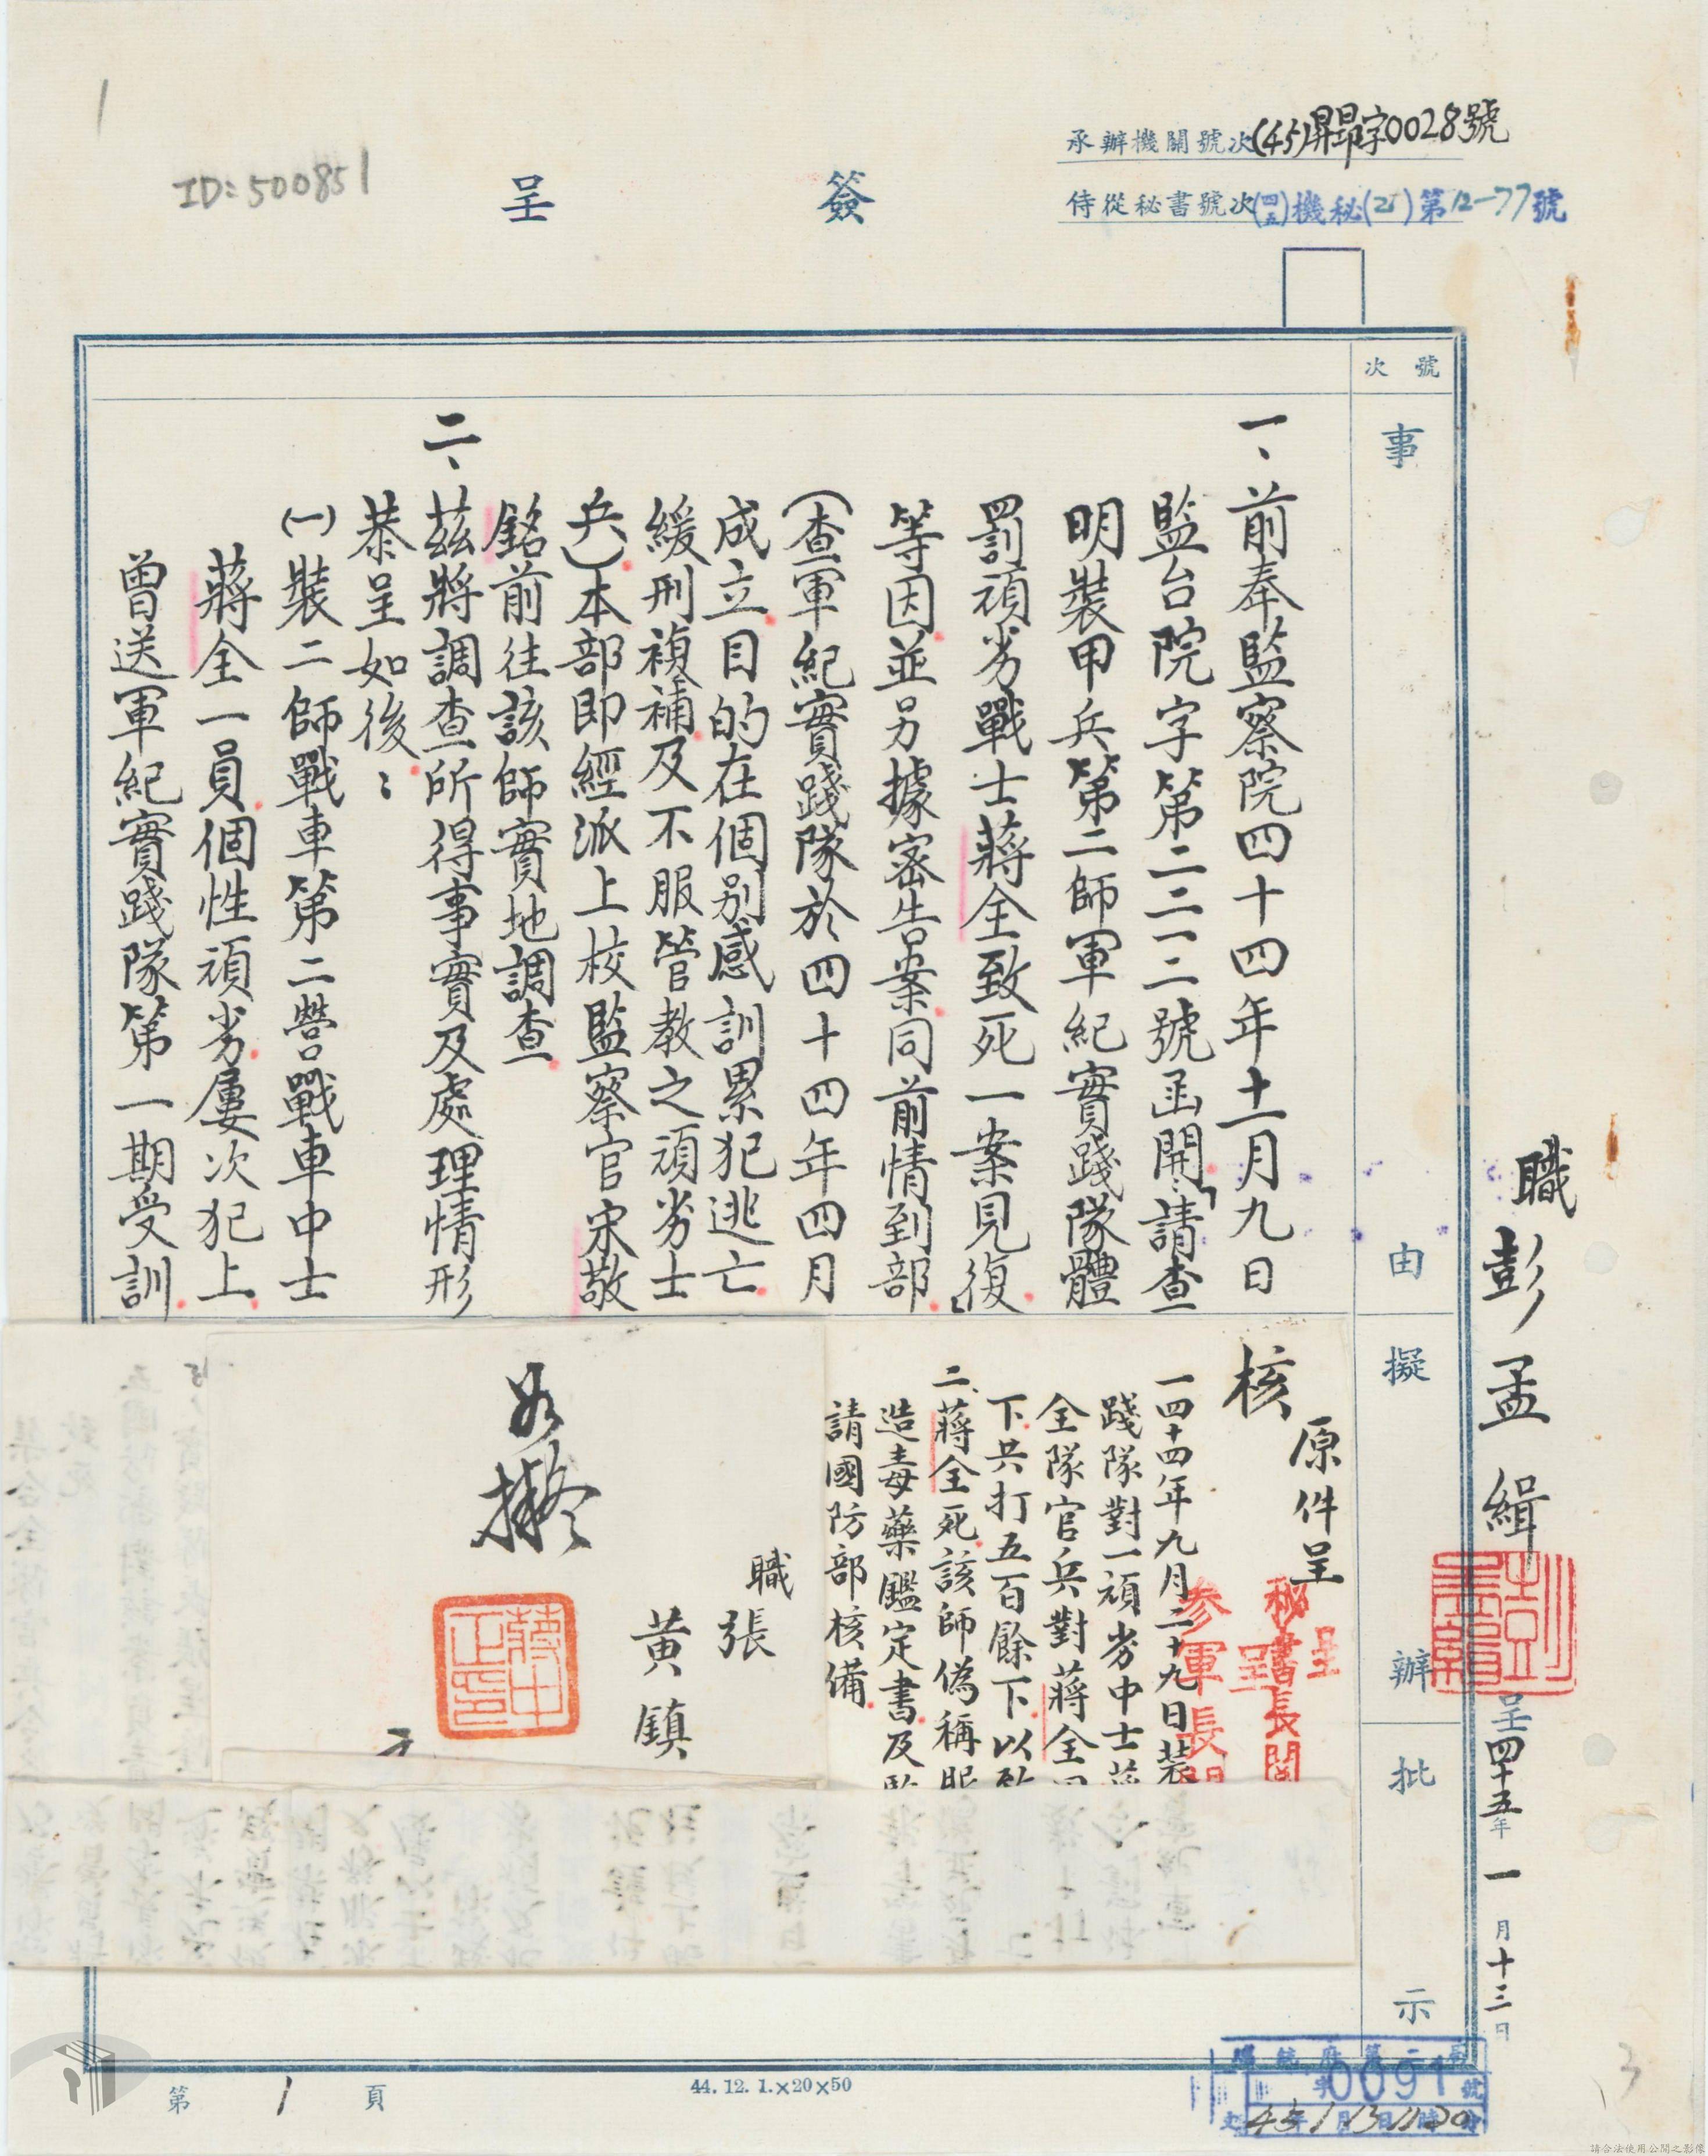 承辦機關號次(45)昴字0028號
侍從秘書號次(四五)機秘(21)第12-77號
ID:500851
1
簽呈
號次
事由
擬辦
批示
職彭孟緝
呈四十五年一月十三日
一、前奉監察院四十四年十一月九日
監台院字第二二一二號函開「請查
明裝甲兵第二師軍紀實踐隊體
罰頑劣戰士蔣全致死一案見復」
等因並另據密告案同前情到部
(查軍紀實踐隊於四十四年四月
成立目的在個別感訓累犯逃亡
緩刑複補及不服管教之頑劣士
兵)本部即經派上校監察官宋敬
銘前往該師實地調查
二、茲將調查所得事實及處理情形
恭呈如後:
(一)裝二師戰車第二營戰車中士
蔣全一員個性頑劣屢次犯上
曾送軍紀實踐隊第一期受訓
原件呈
核
呈
秘書長閱
呈
參軍長閱
一四十四年九月二十九日裝
踐隊對一頑劣中士蔣
全隊官兵對蔣全
下共打五百餘下以致
二、蔣全死該師偽稱服
造毒藥鑑定書及
請國防部核備
職張
黃鎮
如擬
蔣中正印
第1頁
44.12.1.×20×50
總統府第二局
0091號
45年1月13日11時20分
3
請合法使用公開之影像